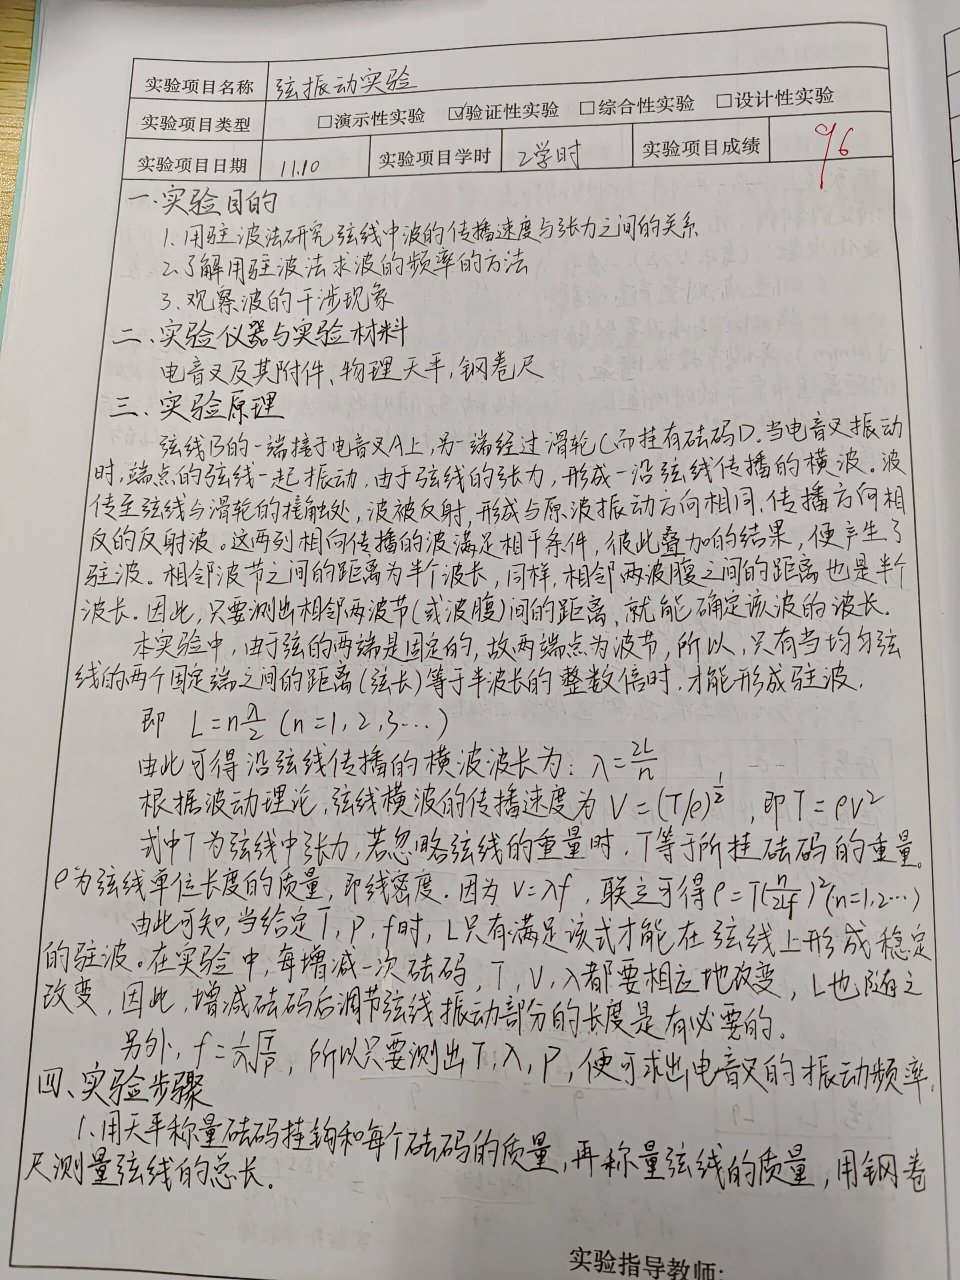 实验项目名称 弦振动实验
实验项目类型 □演示性实验 ☑验证性实验 □综合性实验 □设计性实验
实验项目日期 11.10 实验项目学时 2学时 实验项目成绩 96
一、实验目的
1. 用驻波法研究弦线中波的传播速度与张力之间的关系
2. 了解用驻波法求波的频率的方法
3. 观察波的干涉现象
二、实验仪器与实验材料
电音叉及其附件、物理天平,钢卷尺
三、实验原理
弦线B的一端接于电音叉A上,另一端经过滑轮C而挂有砝码D.当电音叉振动
时,端点的弦线一起振动,由于弦线的张力,形成一沿弦线传播的横波。波
传至弦线与滑轮的接触处,波被反射,形成与原波振动方向相同、传播方向相
反的反射波。这两列相向传播的波满足相干条件,彼此叠加的结果,便产生了
驻波。相邻波节之间的距离为半个波长,同样,相邻两波腹之间的距离也是半个
波长.因此,只要测出相邻两波节(或波腹)间的距离,就能确定该波的波长.
本实验中,由于弦的两端是固定的,故两端点为波节,所以,只有当均匀弦
线的两个固定端之间的距离(弦长)等于半波长的整数倍时,才能形成驻波.
即 L=nλ/2 (n=1,2,3…)
由此可得沿弦线传播的横波波长为: λ=2L/n
根据波动理论,弦线横波的传播速度为 V=(T/ρ)^1/2 ,即T=ρV²
式中T为弦线中张力,若忽略弦线的重量时,T等于所挂砝码的重量。
ρ为弦线单位长度的质量,即线密度.因为 V=λf ,联立可得 ρ=T(n/2Lf)²(n=1,2…)
由此可知,当给定T,ρ,f时,L只有满足该式才能在弦线上形成稳定
的驻波。在实验中,每增减一次砝码,T,V,λ都要相应地改变,L也随之
改变,因此,增减砝码后调节弦线振动部分的长度是有必要的。
另外,f=1/λ√T/ρ,所以只要测出T,λ,ρ,便可求出电音叉的振动频率.
四、实验步骤
1.用天平称量砝码挂钩和每个砝码的质量,再称量弦线的质量,用钢卷
尺测量弦线的总长.
实验指导教师: